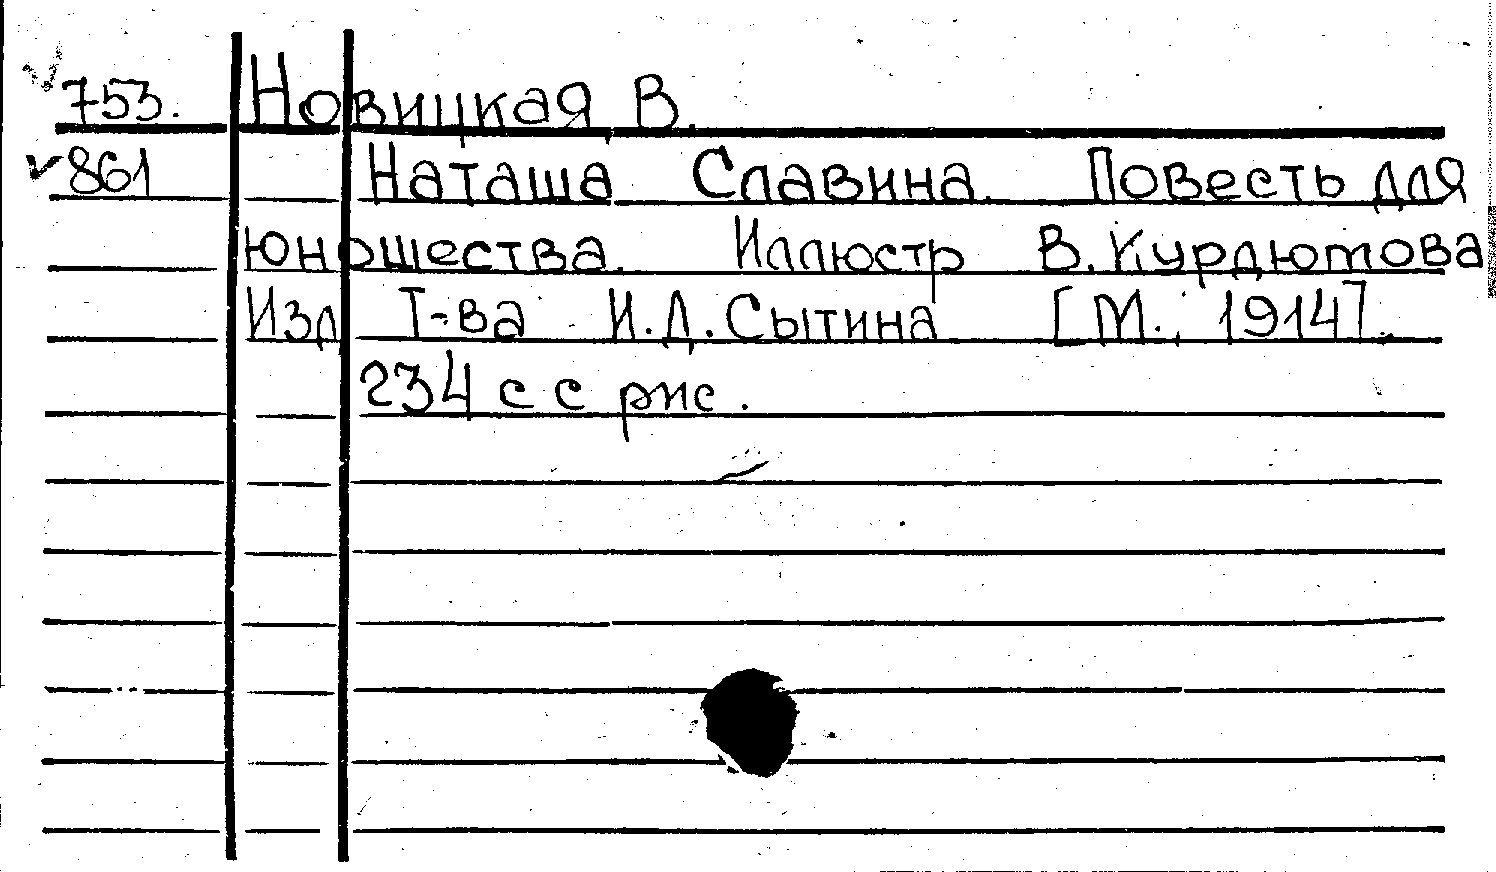 753. Новицкая В.
861 Наташа Славина. Повесть для
юношества. Иллюстр В. Курдюмова
Изд Т-ва И.Д.Сытина [М., 1914].
234 с с рис.